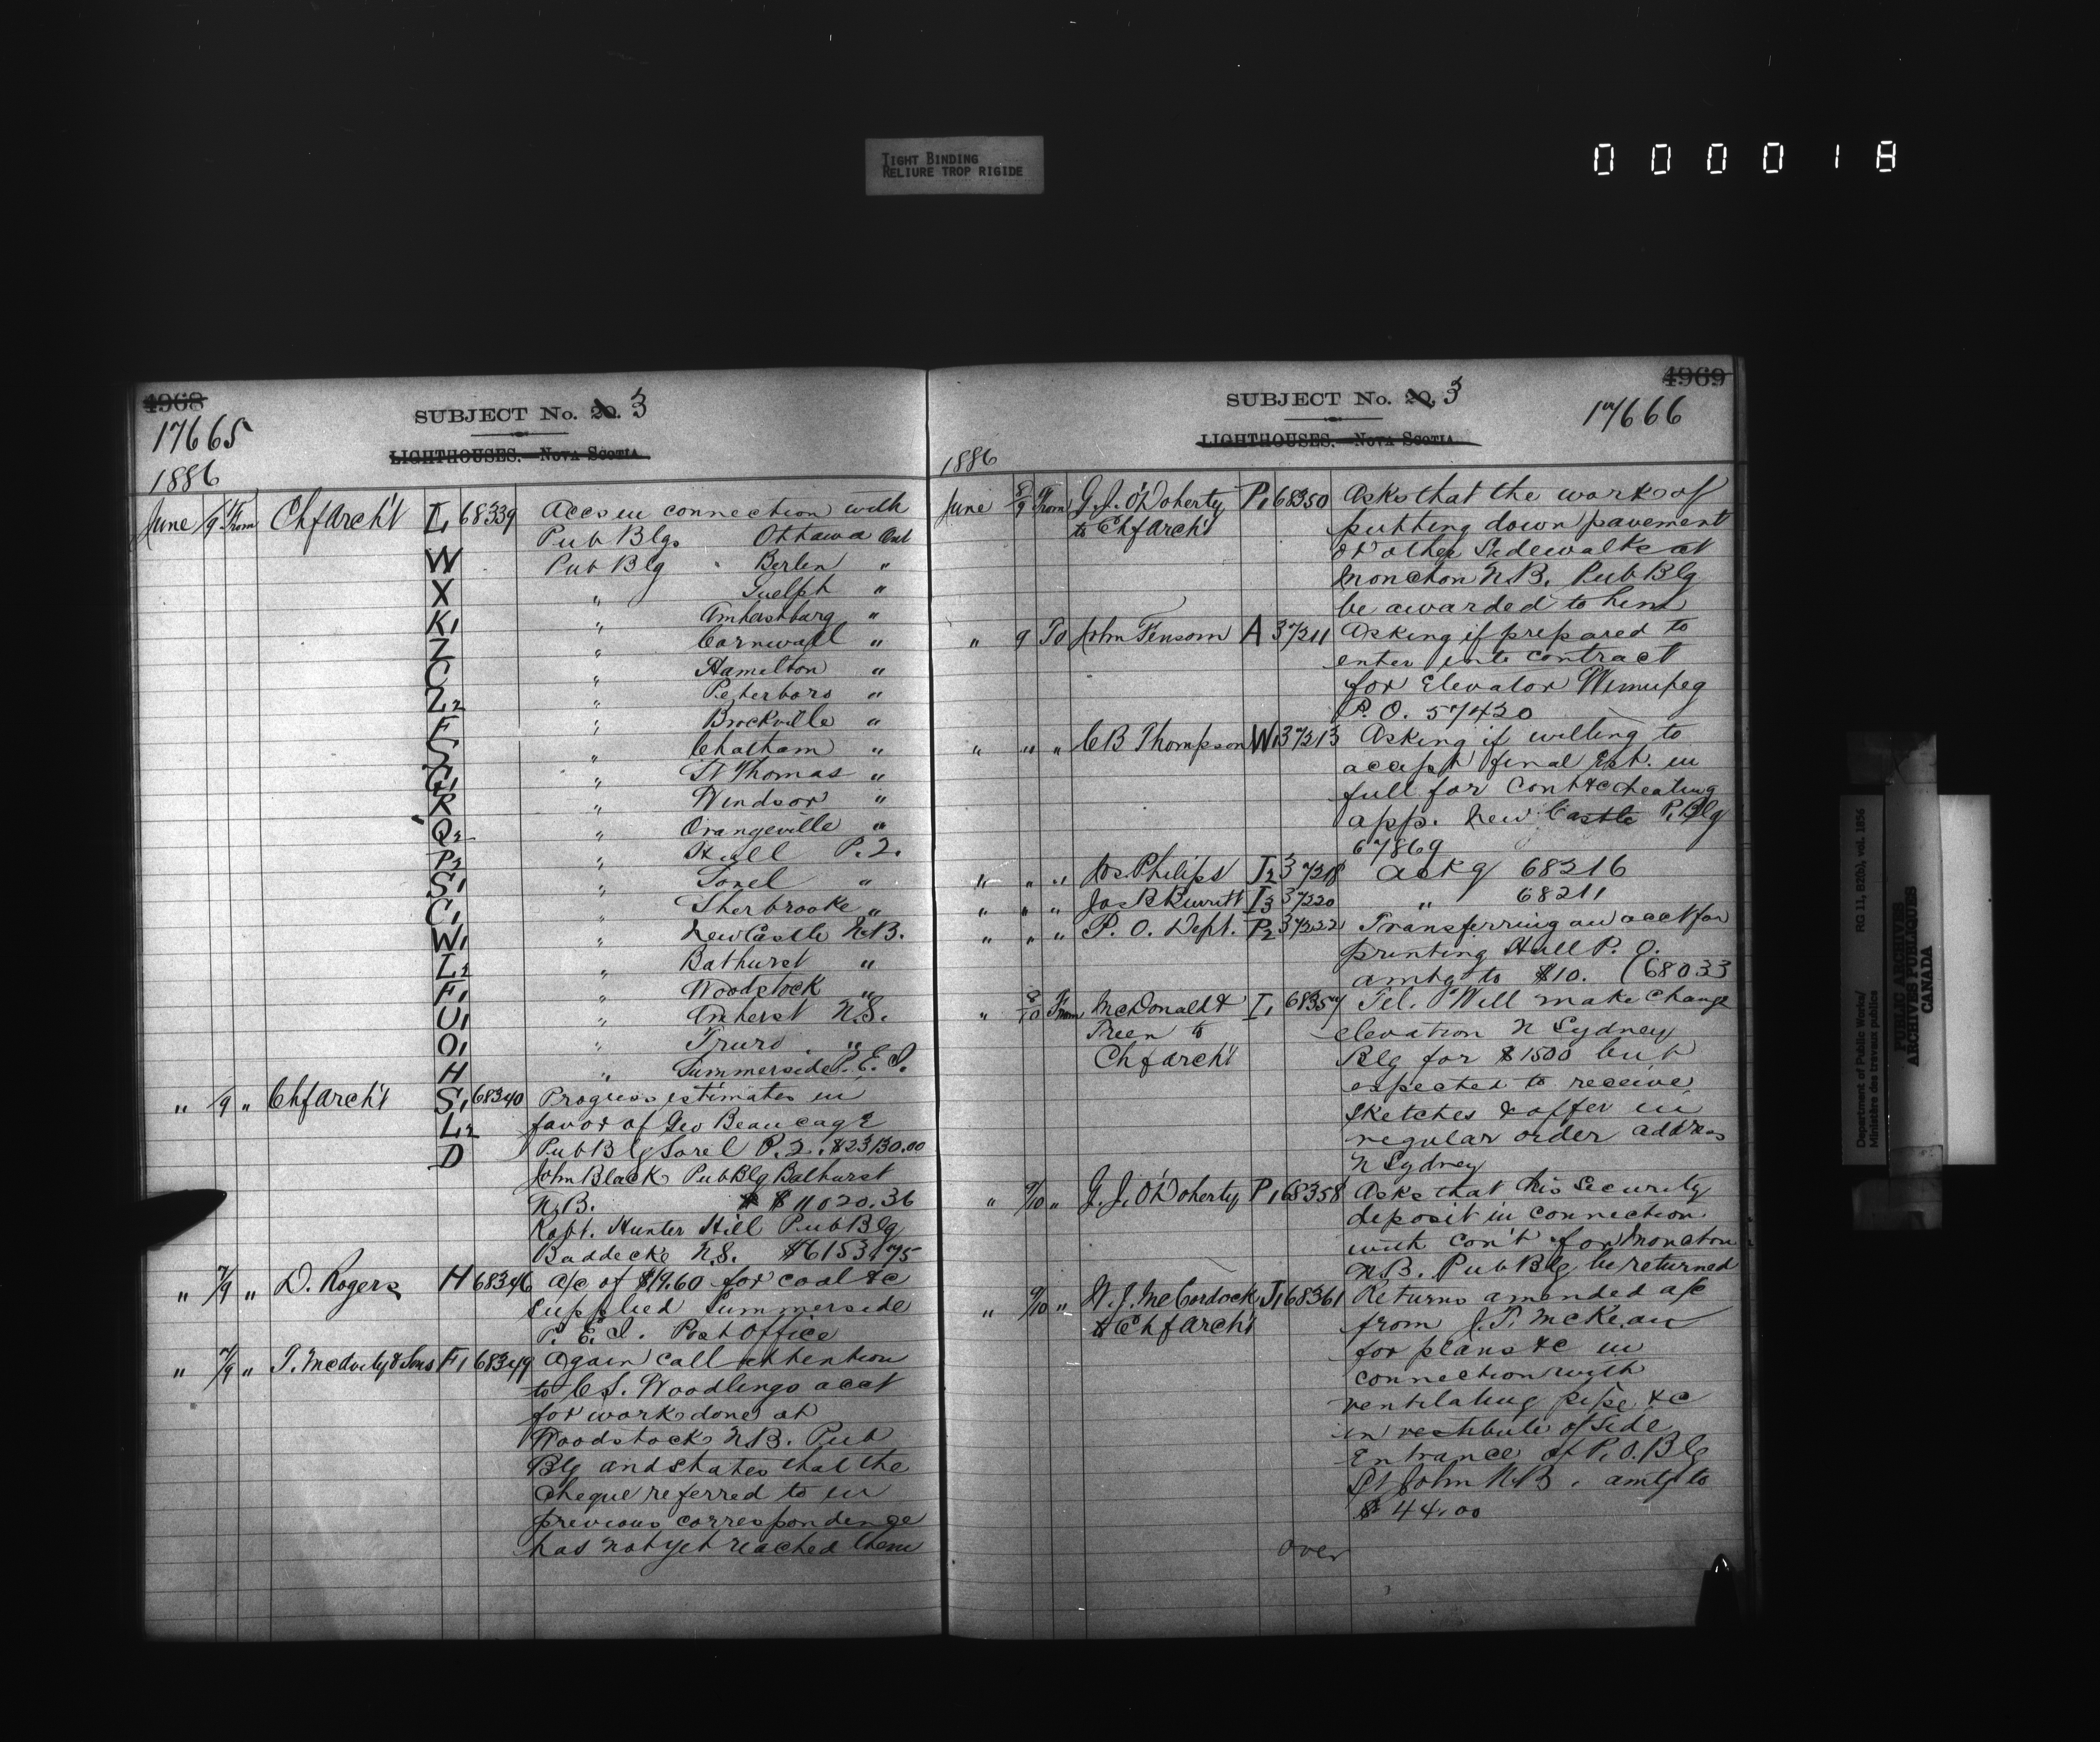 TIGHT BINDING
RELIURE TROP RIGIDE
0 0 0 0 1 8
4968
17665
SUBJECT No. 20. 3
LIGHTHOUSES. — NOVA SCOTIA
1886
June /9 From Chf Arch't I, 68339 Accs in connection with
Pub Blgs Ottawa Ont
W Pub Blg Berlin "
X " Guelph "
K1 " Amherstburg "
Z " Cornwall "
C " Hamilton "
Z2 " Peterboro "
F " Brockville "
S " Chatham "
G1 " St Thomas "
R " Windsor "
Q2 " Orangeville "
P2 " Hull P. Q.
S1 " Sorel "
C1 " Sherbrooke "
W1 " New Castle N.B.
L2 " Bathurst "
F1 " Woodstock "
U1 " Amherst N.S.
O1 " Truro "
H " Summerside P. E. I.
" /9 " Chf Arch't S1 68340 Progress estimates in
L2 favor of Geo Beaucage
D Pub Blg Sorel P. Q. $23130.00
John Black Pub Blg Bathurst
N.B. $11020.36
Robt. Hunter Hill Pub Blg
Baddeck N.S. $6153.75
" 7/9 " D. Rogers H 68346 a/c of $19.60 for coal &c
supplied Summerside
P. E. I. Post Office
" 7/9 " T. McAvity & Sons F1 68349 Again call attention
to C S. Woodlings acct
for work done at
Woodstock N.B. Pub
Blg and states that the
cheque referred to in
previous correspondence
has not yet reached them
4969
SUBJECT No. 20, 3
17666
LIGHTHOUSES. — NOVA SCOTIA
1886
June 8/9 From G. J. O'Doherty P1 68350 Asks that the work of
to Chf Arch't putting down pavement
or other Sidewalks at
Moncton N.B. Pub Blg
be awarded to him
" 9 To John Fensom A 37211 Asking if prepared to
enter into contract
for Elevator Winnipeg
P. O. 57420
" " " C B Thompson W1 37213 Asking if willing to
accept final Est. in
full for Cont &c heating
app. New Castle P. Blg
67869
" " " Jos Philips I2 37218 Ackg 68216
" " " Jas R Burritt I3 37220 " 68211
" " " P. O. Dept. P2 37222 Transferring an acct for
printing Hull P. O.
amtg to $10. (68033
" 8/10 From McDonald & I, 68357 Tel. "Will make change
Treen to elevation N Sydney
Chf Arch't Blg for $1500 but
expected to receive
sketches & offer in
regular order address
N Sydney
" 9/10 " G. J. O'Doherty P1 68358 Asks that his Security
deposit in connection
with Con't for Moncton
N.B. Pub Blg be returned
" 9/10 " W. J. McCordock J1 68361 Returns amended a/c
to Chf Arch't from J. T. McKean
for plans &c in
connection with
ventilating pipe &c
in vestibule of side
Entrance of P. O. Blg
St John N.B. amtg to
$44.00
over
Department of Public Works/
Ministère des travaux publics
RG 11, B2(b), vol. 1856
PUBLIC ARCHIVES
ARCHIVES PUBLIQUES
CANADA